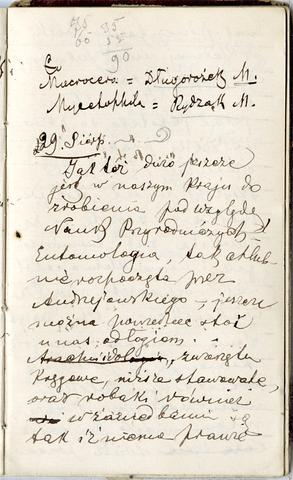 35 35
55 55
90
Macrocera = Długorożek M.
Mycetophila = Rydzak M.
29 Sierp.
Jak też dużo jeszcze
jest w naszym kraju do
zrobienia pod względem
Nauk Przyrodniczych –
Entomologia, tak chlub-
nie rozpoczęta przez
Andrzejowskiego –, jeszcze
można powiedzieć stoi
u nas odłogiem. –
zwierzęta
Kręgowe, niższe stawowate,
oraz robaki również
w zaniedbaniu są
tak iż niema prawie